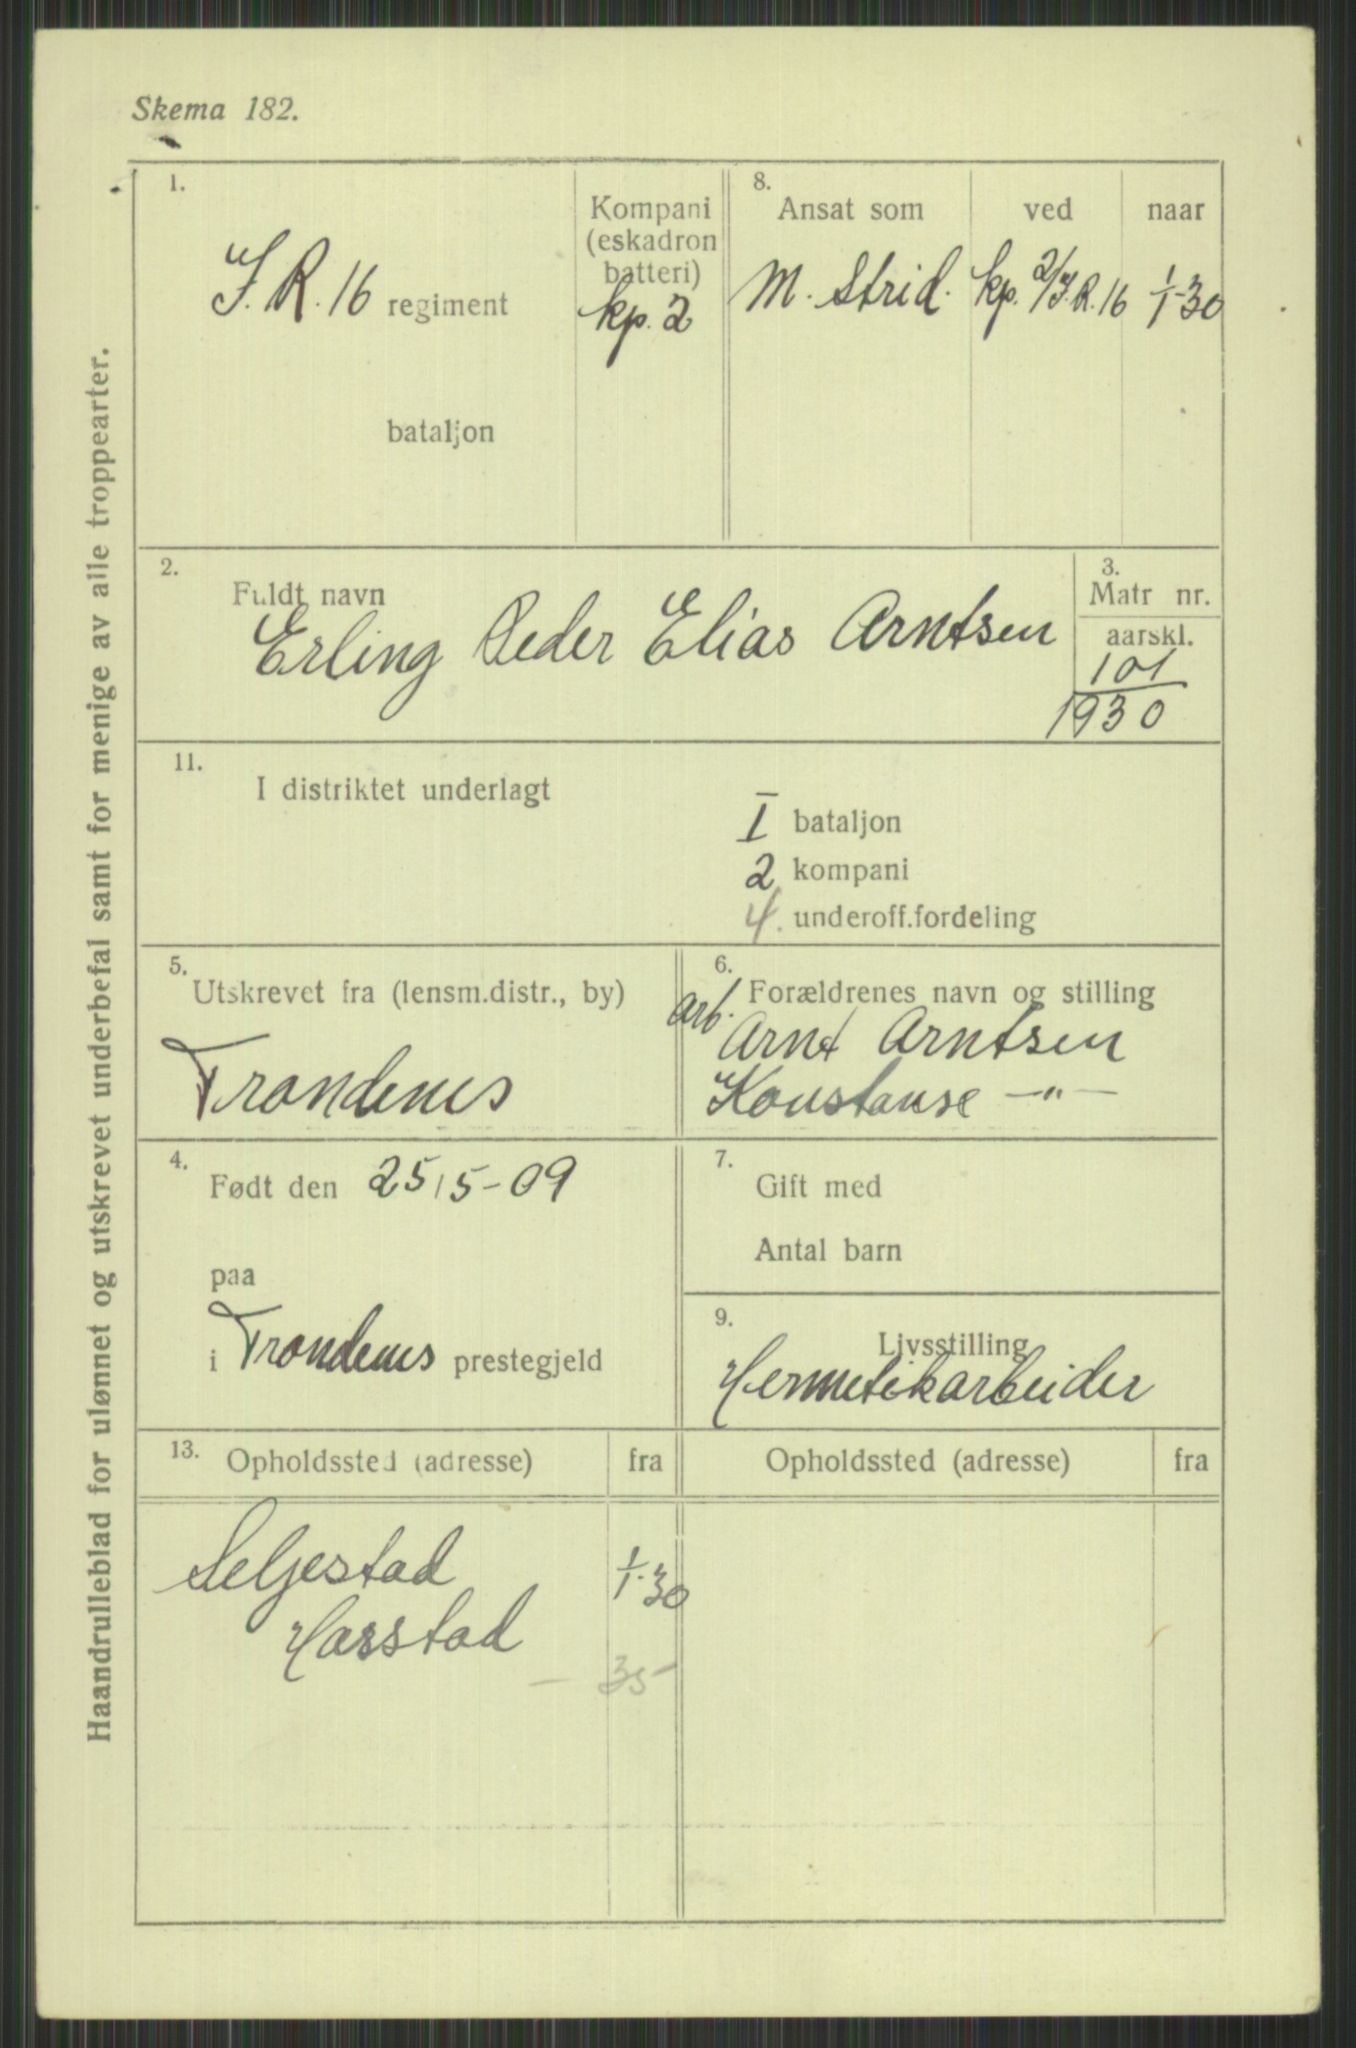 Skema 182.
Haandrulleblad for ulønnet og utskrevet underbefal samt for menige av alle troppearter.
1.
I. R. 16 regiment
bataljon
Kompani
(eskadron
batteri)
kp. 2
8.
Ansat som ved naar
M. Strid. kp. 2/I.R. 16 1/1-30
2.
Fuldt navn
Erling Peder Elias Arntsen
3.
Matr nr.
aarskl.
101
1930
11.
I distriktet underlagt
I bataljon
2 kompani
4. underoff.fordeling
5.
Utskrevet fra (lensm.distr., by)
Trondenes
6.
Forældrenes navn og stilling
arb. Arnt Arntsen
Konstanse —"—
4.
Født den 25/5-09
paa
i Trondenes prestegjeld
7.
Gift med
Antal barn
9.
Livsstilling
Hermetikarbeider
13. Opholdssted (adresse) fra Opholdssted (adresse) fra
Seljestad 1/1-30
Harstad
— 35 —